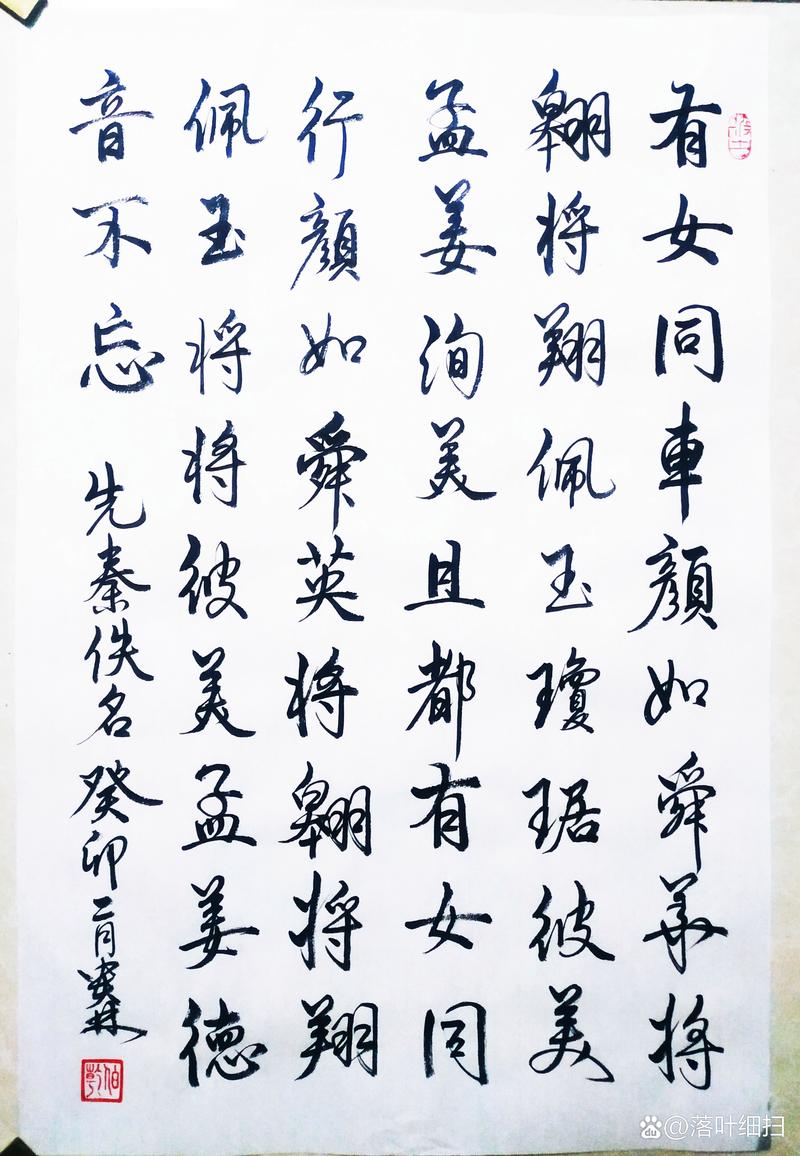 有女同車顏如舜華将
翱将翔佩玉瓊琚彼美
孟姜洵美且都有女同
行顏如舜英将翱将翔
佩玉将将彼美孟姜德
音不忘 先秦佚名 癸卯二月
伯乾
@落叶细扫